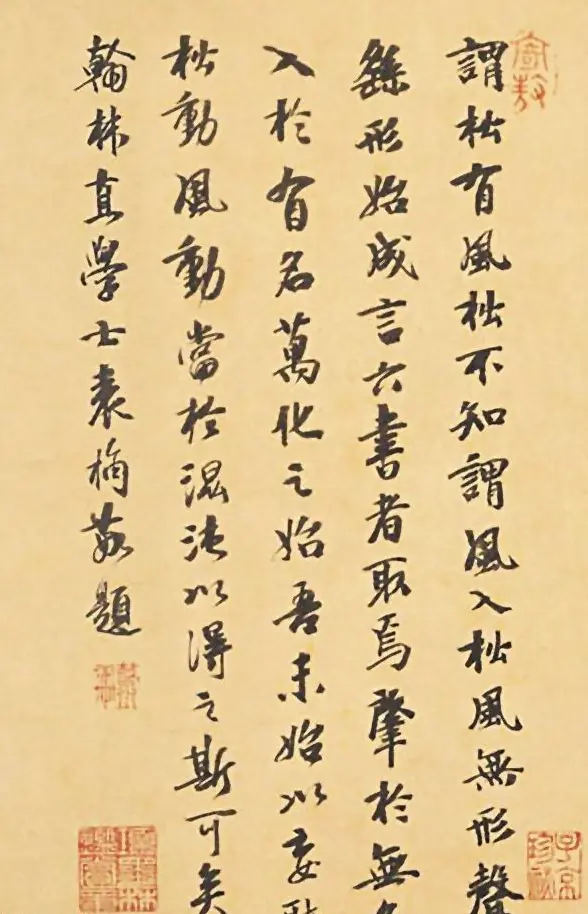 謂松有風松不知謂風入松風無形聲
繇形始成言六書者取焉肇於無
入於有名萬化之始吾未始以妄
松動風動當於混沌以得之斯可矣
翰林直學士袁桷敬題
寄敖
子京珍秘